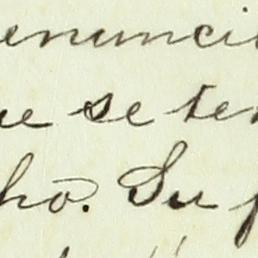 enunci
ue se ter
ho. Su p